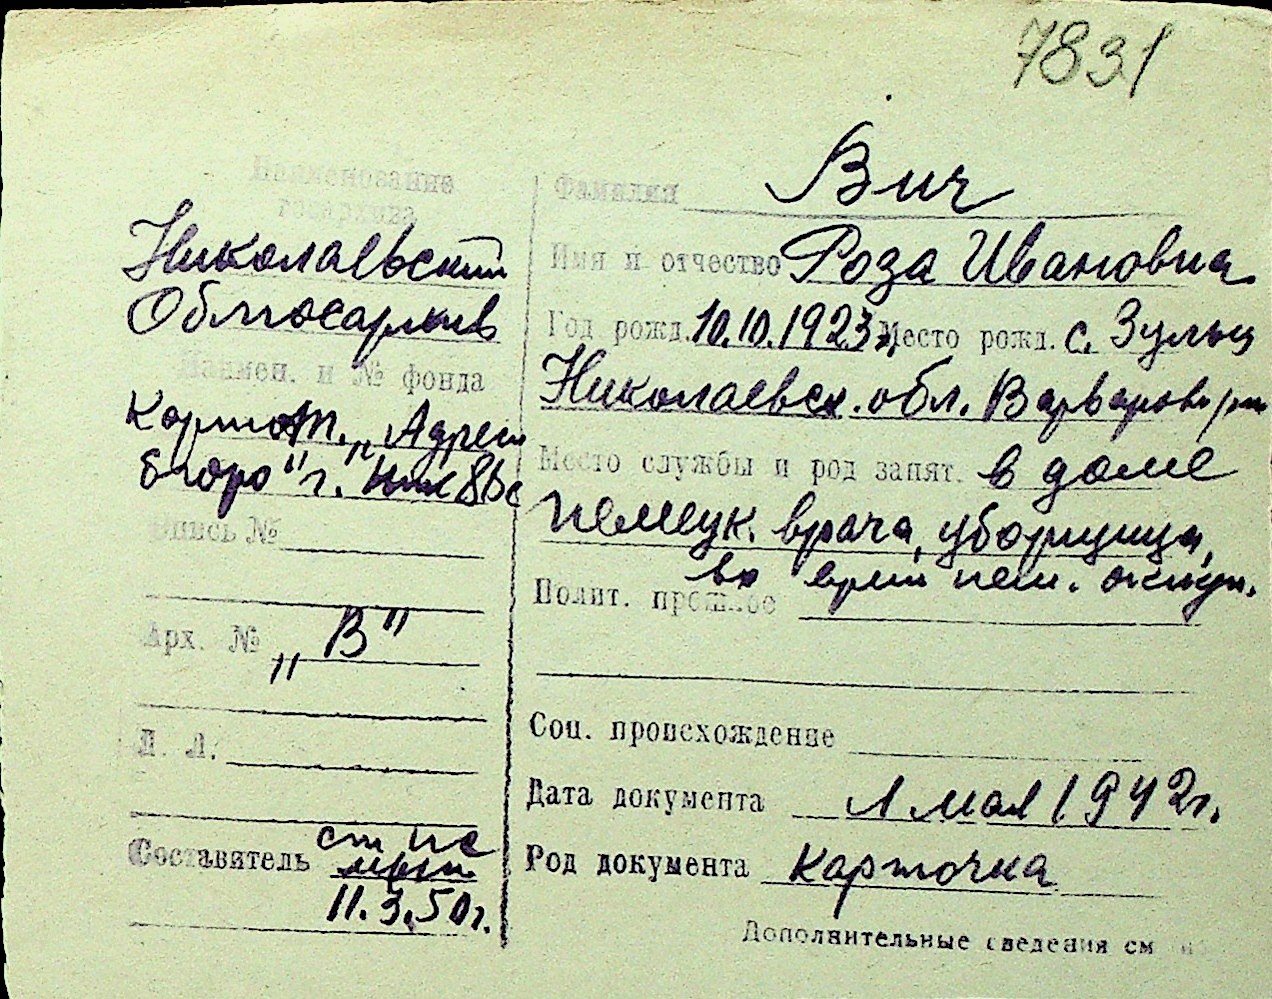 7831
Наименование
госархива
Николаевский
Облгосархив
Наимен. и № фонда
Картот. „Адресн
бюро" г.
Опись №
Арх. № „В"
Л. Л.
Составитель
11.3.50г.
Фамилия Вич
Имя и отчество Роза Ивановна
Год рожд. 10.10.1923 Место рожд. с. Зульц
Николаевск. обл. Варваров р-на
Место службы и род занят. в доме
немецк. врача, уборщица,
во врем нем. оккуп.
Полит. прошлое
Соц. происхождение
Дата документа 1 мая 1942г.
Род документа Карточка
Дополнительные сведения см